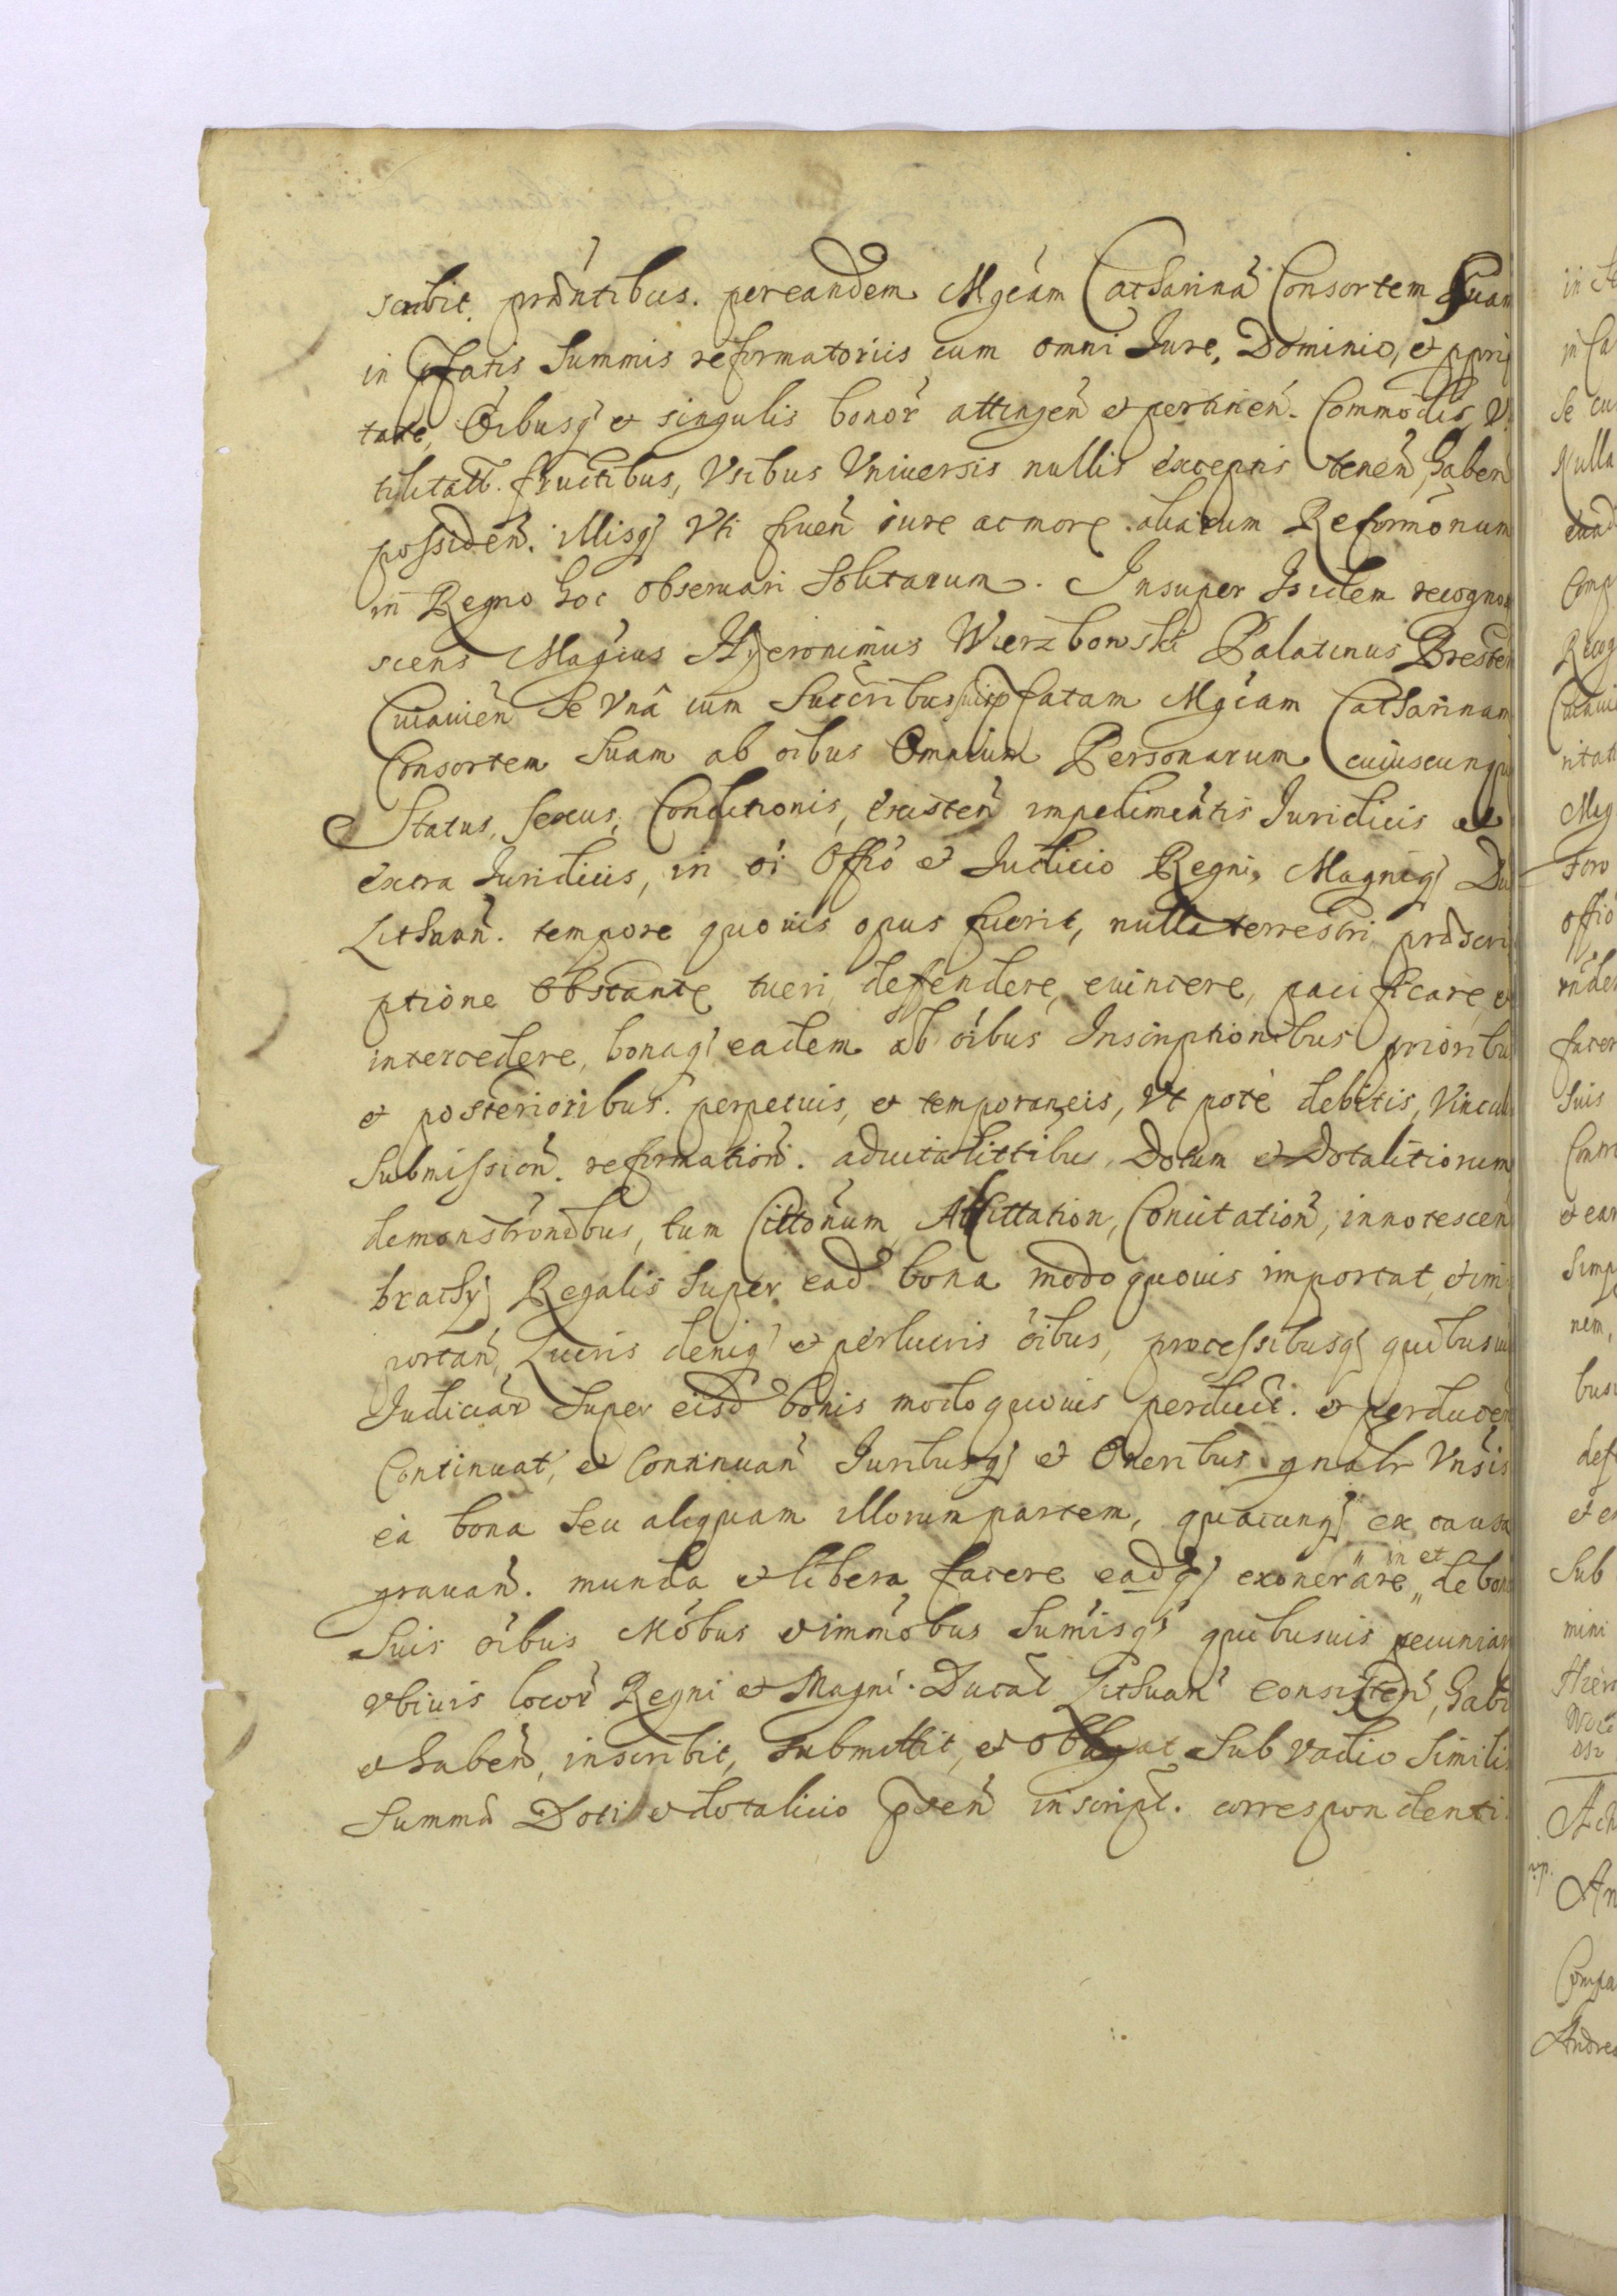 scribit. prńtibus. per eandem Mgćam Catharinā Consortem Suam
in pfatis Summis reformatoriis cum omni Jure, Dominio, et ppri
tate, Oibusq et singulis bonoř attingeñ et pertineñ. Commodis, V
tilitatt. fructibus, Vsibus Vniuersis nullis exceptis teneñ, haben
possideñ. illisq Vti frueñ iure ac more aliarum Reformonum
in Regno hoc obseruari Solitarum. Insuper Isidem recogno
scens Magcus Hyeronimus Wierzbowski Palatinus Bresten
Cuiauień Se Vnâ cum Succribus suis pfatam Mgćam Catharinam
Consortem Suam ab oibus Omnium Personarum cuiuscunq
Status, Sexus, Conditionis, Existeñ impedimentis Juridicis et
extra Juridicis, in oi Offiö et Judicio Regni, Magniq Du
Lithuañ. tempore quouis opus fuerit, nulla terrestri prascri
ptione obstante tueri, defendere, euincere, pacificare, et
intercedere, bonaq eadem ab oibus Inscriptionibus prioribus
et posterioribus. perpetuis, et temporaneis, Vt potè debitis, Vincul
Submissioñ. reformatioñ. aduitalittibus, Dotum et Dotalitiorum
demonstronibus, tum Cittonum, Atittation, Conuitatioñ, innotescen
brachy Regalis Super ead bona modo quouis importat, et im
portañ, Lucris deniq et perlucris oibus, processibusq quibusuis
Judiciař Super eisd bonis modo quouis perduct. et perduceñ
Continuat, et Continuañ Juribusq et Oneribus gnalr Vnsis
ea bona Seu aliquam illorum partem, quacunq ex causa
grauañ. munda et libera facere eadq exonerare in et de bonis
Suis oibus Mobus et immobus Summisq quibusuis pecuniar
vbiuis locoř Regni et Magni Ducat Lithuań consisteñ, habi
et habeñ, inscribit, submittit, et obligat Sub vadio Simili
Summa Doti et dotalicio pteñ inscript. correspondenti